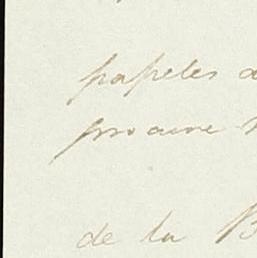 papeles a
procure
de la B